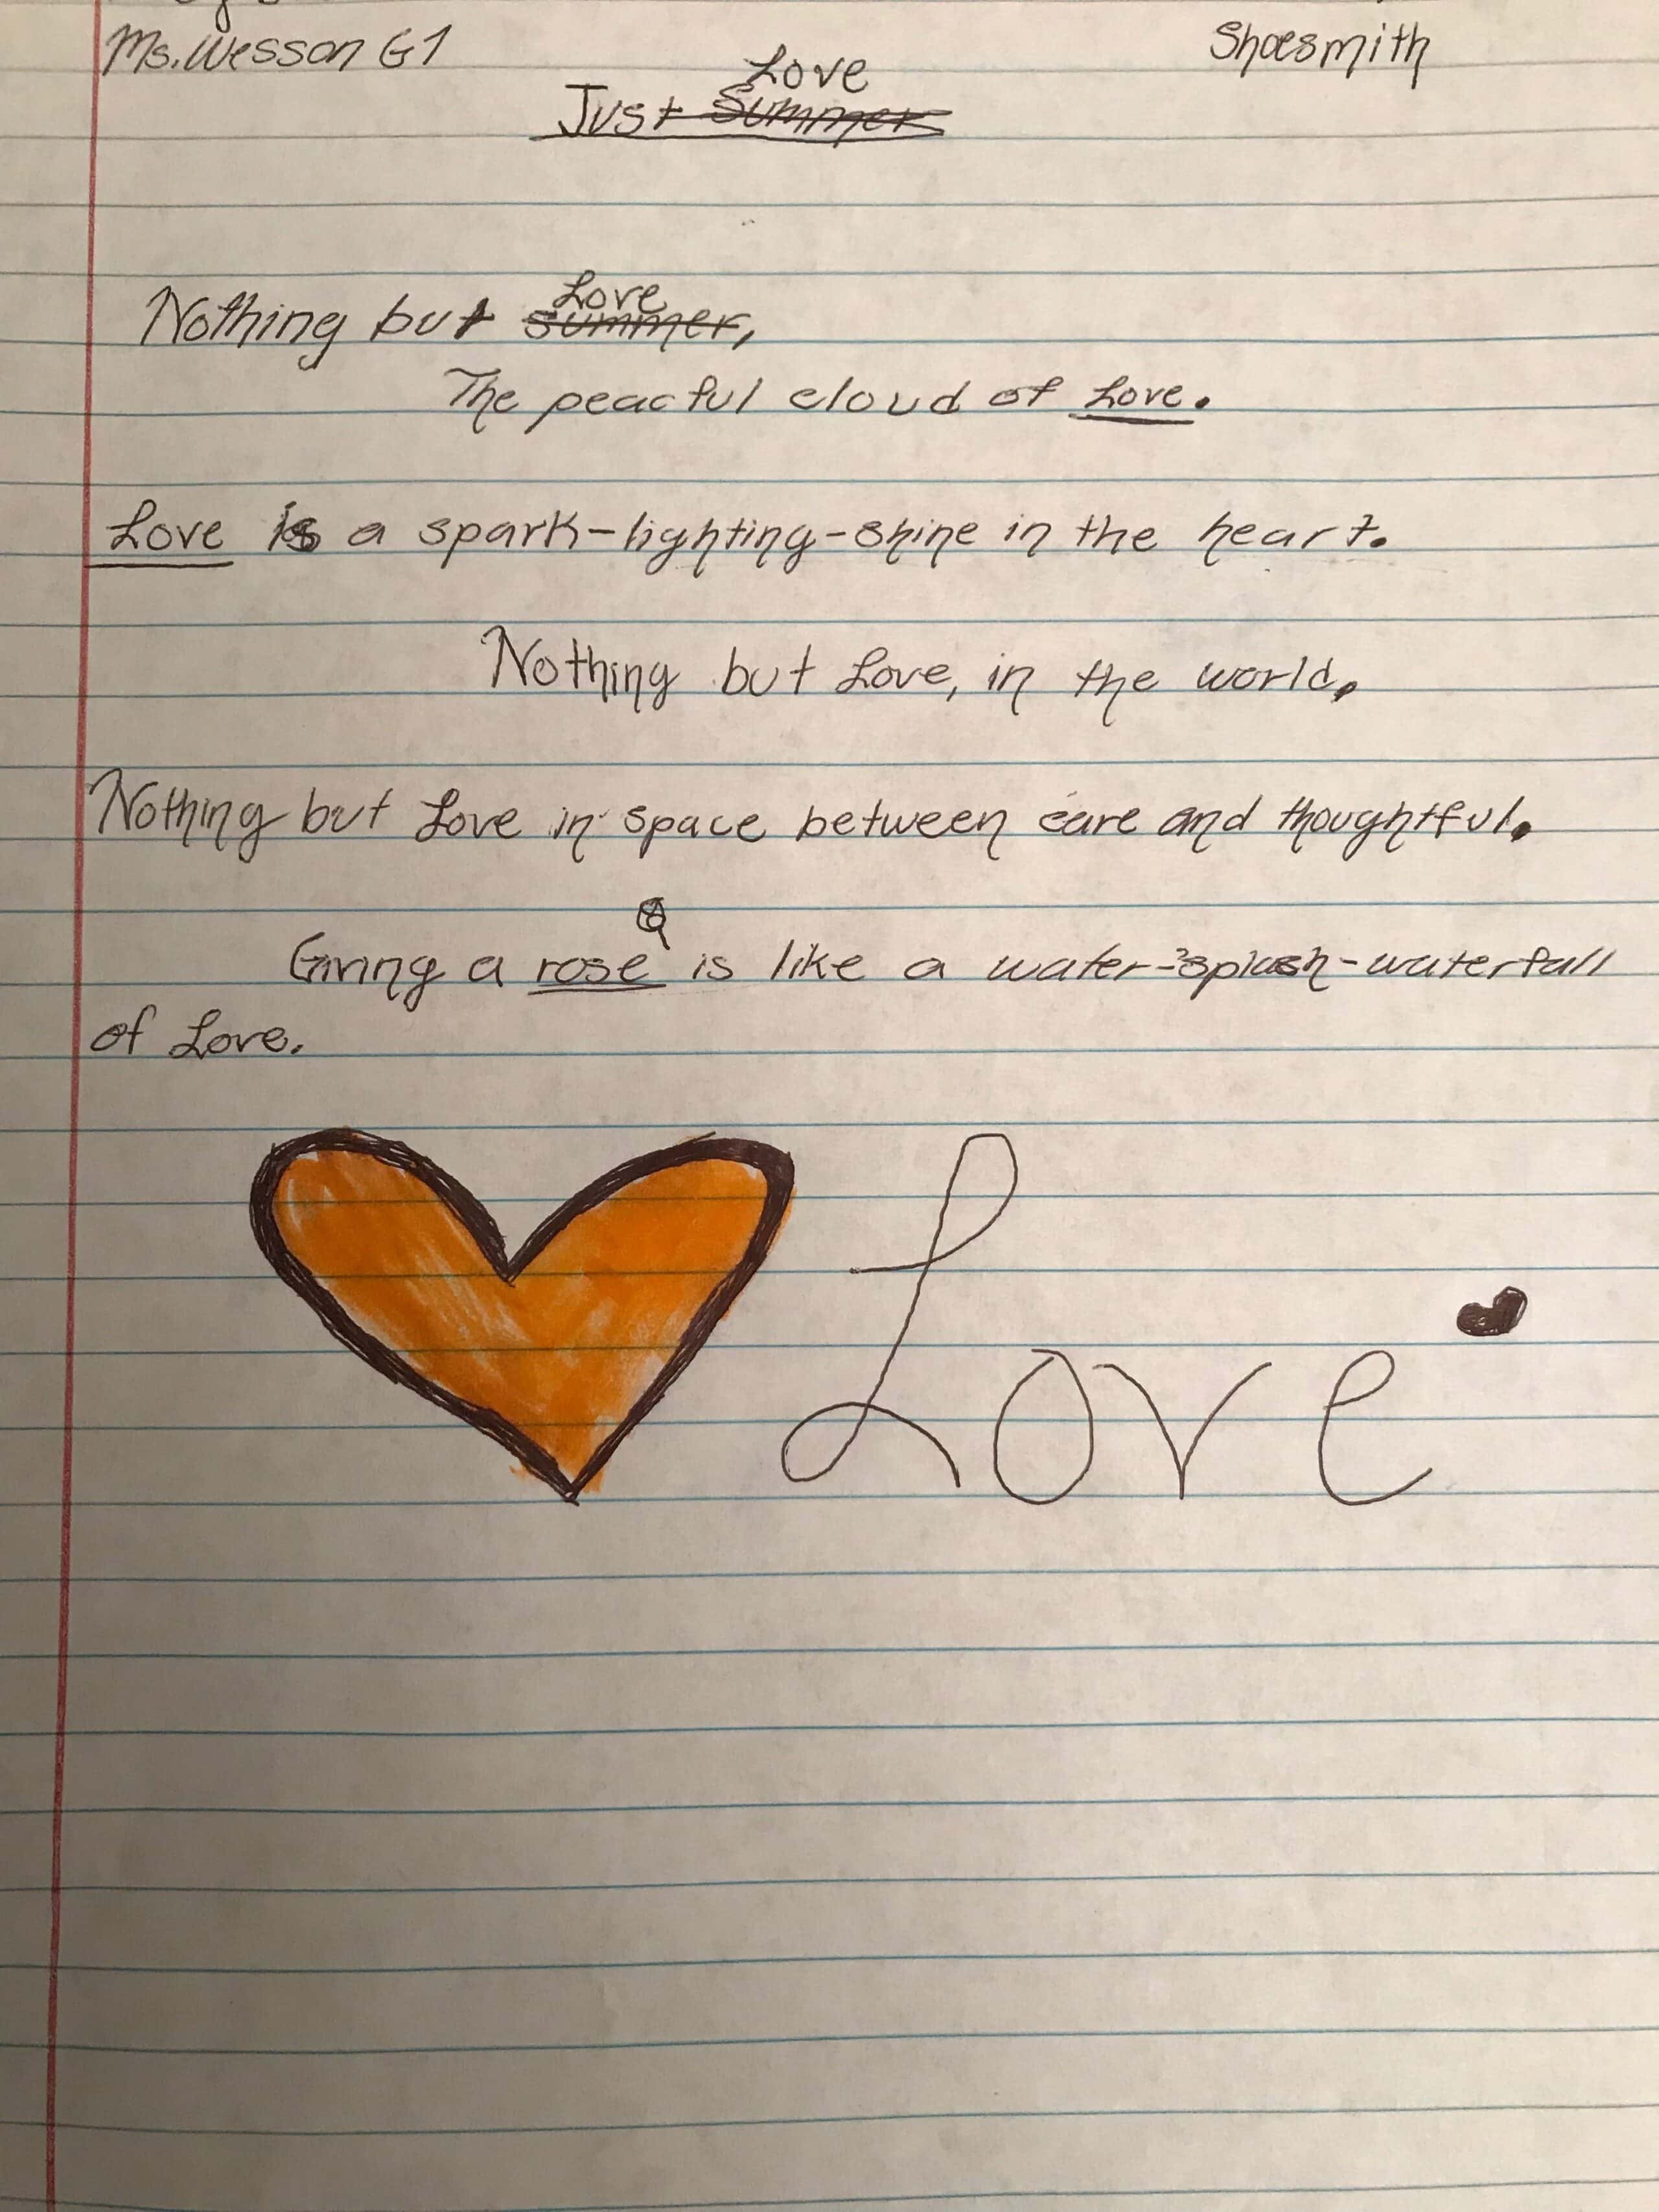 Ms. Wesson G1 Shoesmith
Love
Just Summer
Love
Nothing but summer,
The peacful cloud of Love.
Love is a spark-lighting-shine in the heart.
Nothing but Love, in the world.
Nothing but Love in space between care and thoughtful.
Giving a rose is like a water-splash-waterfall
of Love.
Love